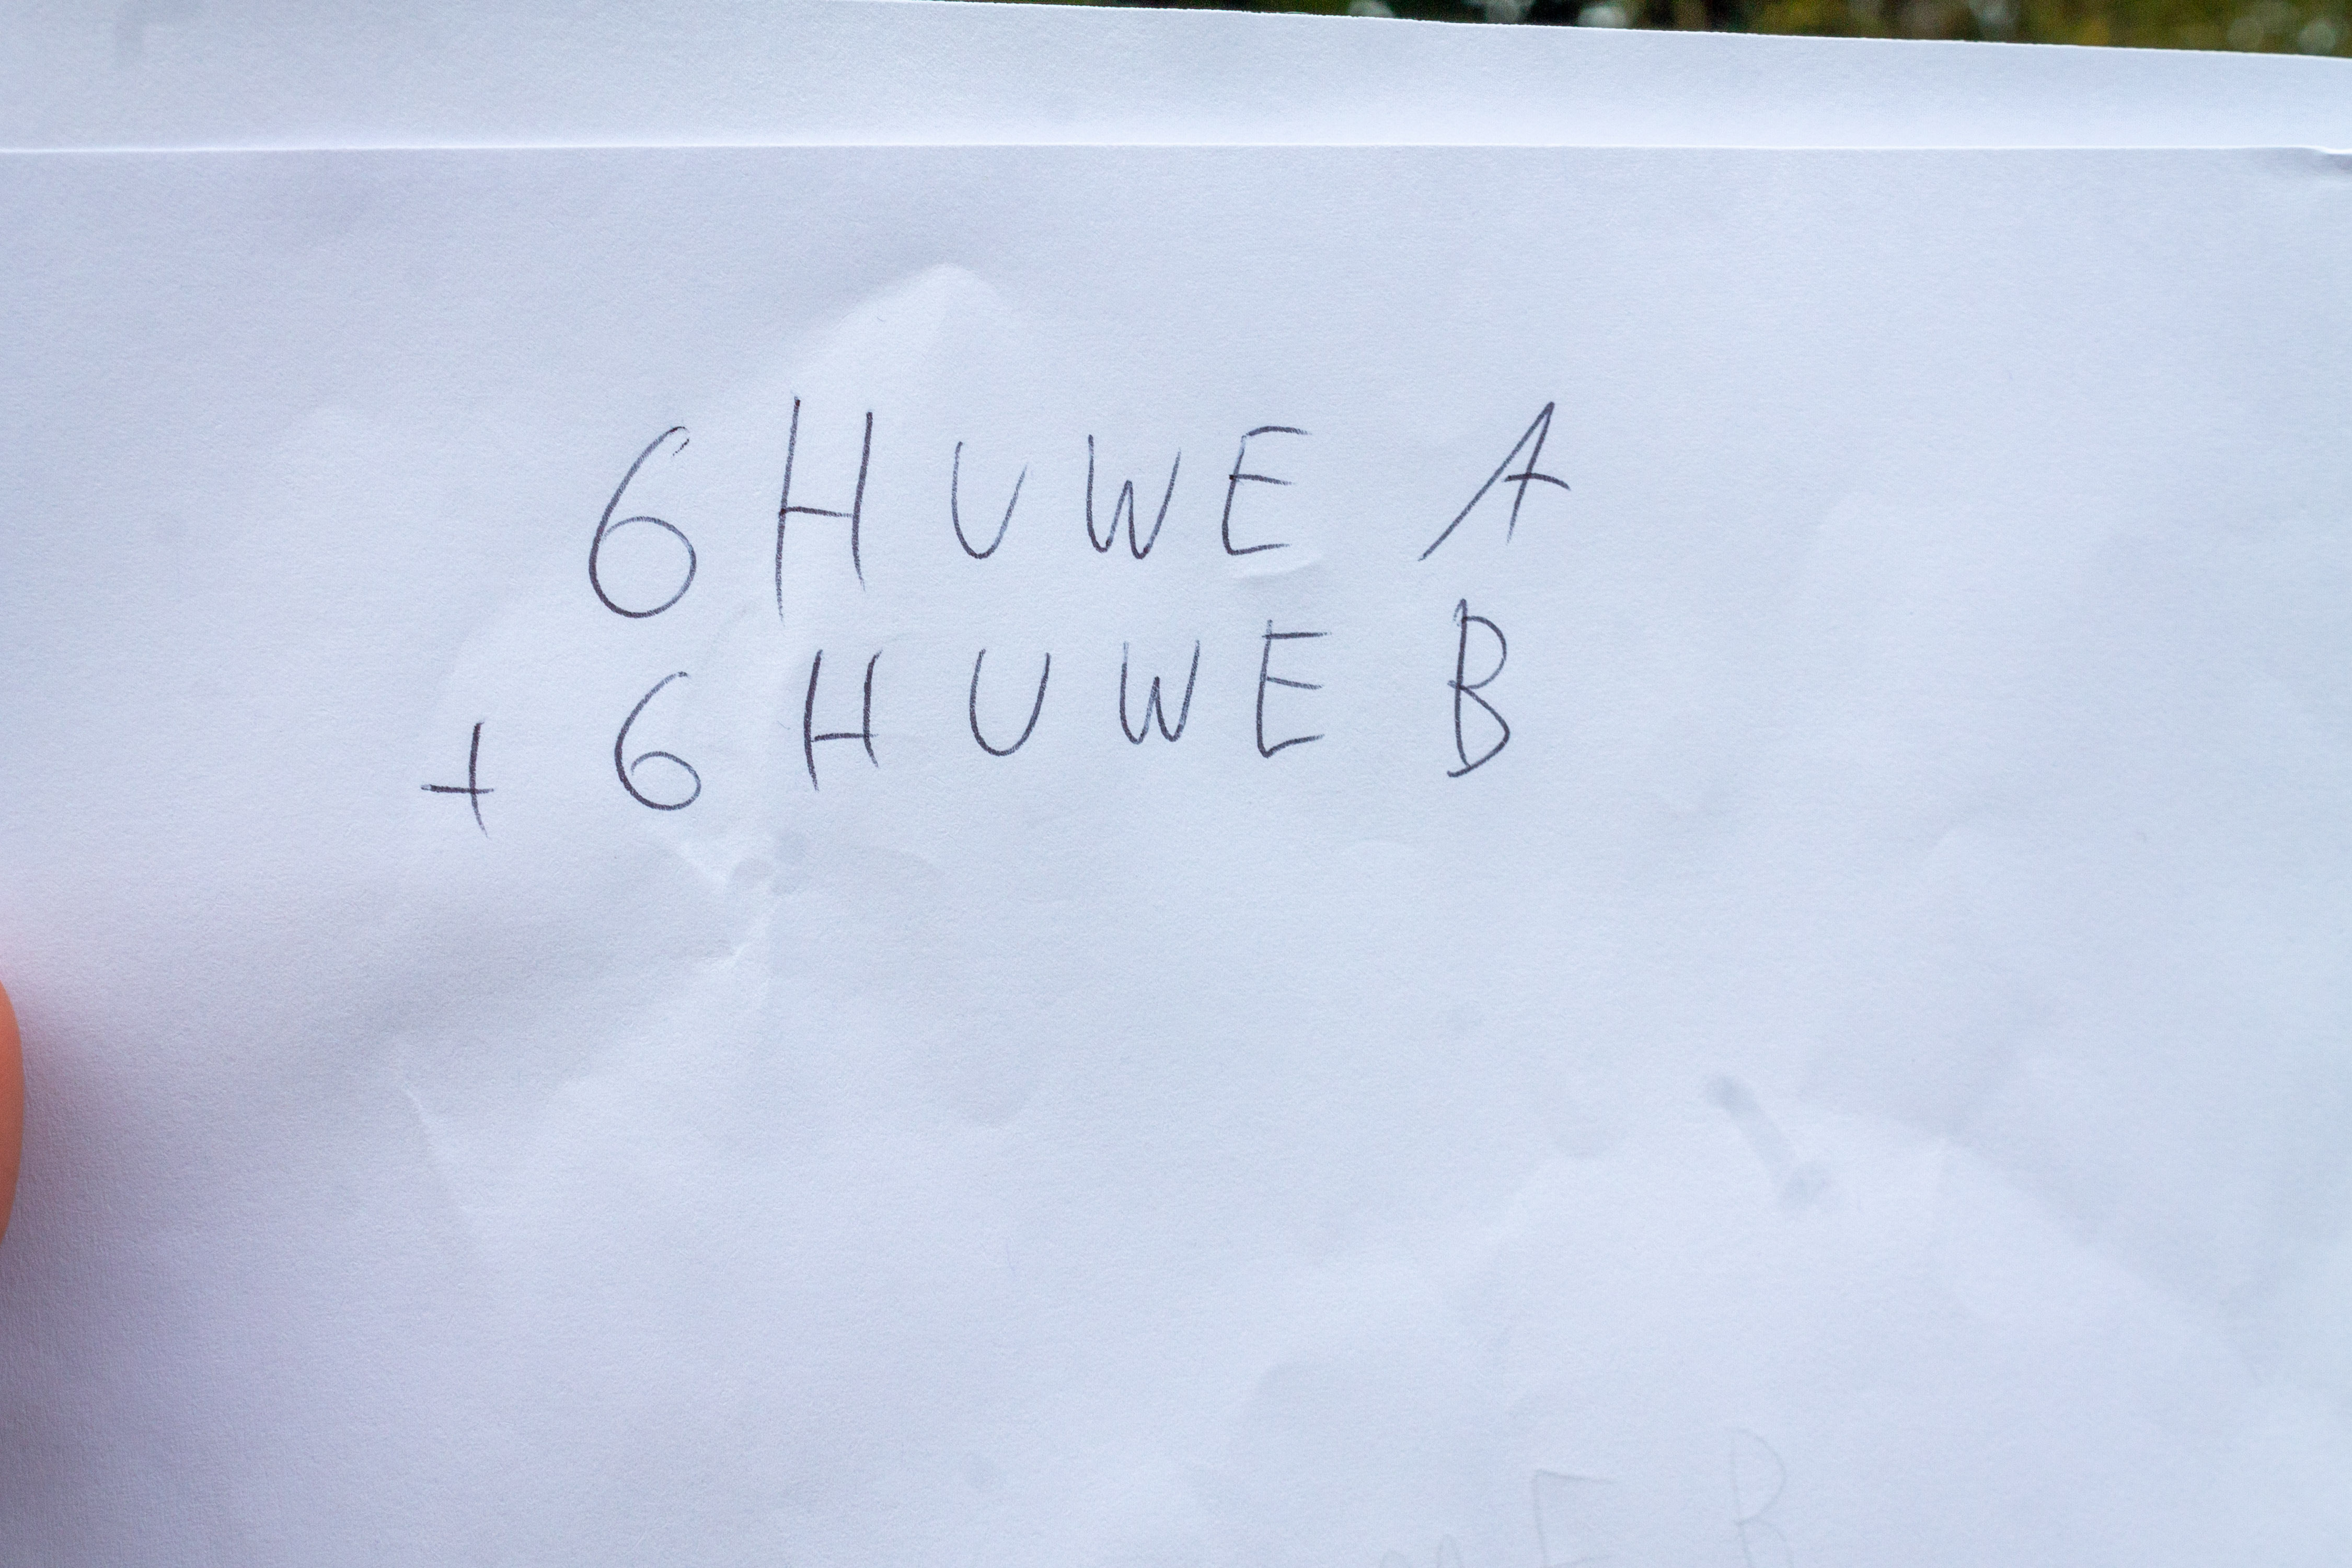 6 HUWE A
+ 6 HUWE B